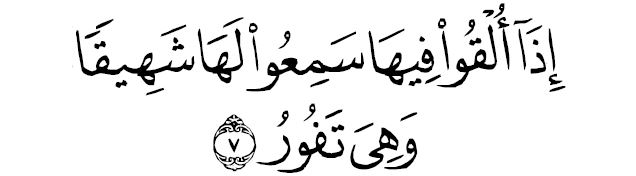 إِذَآ أُلْقُوا۟ فِيهَا سَمِعُوا۟ لَهَا شَهِيقًا
وَهِىَ تَفُورُ ٧